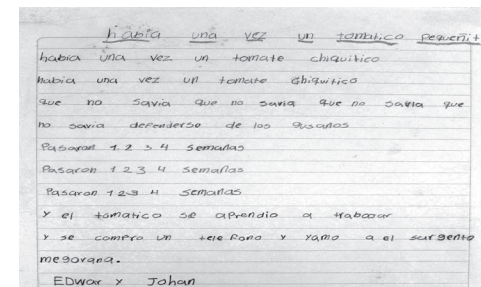 había una vez un tomatico pequeñit
habia una vez un tomate chiquitico
habia una vez un tomate chiquitico
que no savia que no savia que no savia que
no savia defenderse de los gusanos
Pasaron 1 2 3 4 semanas
Pasaron 1 2 3 4 semanas
Pasaron 1 2 3 4 semanas
y el tomatico se aprendio a trabagar
y se compro un telefono y yamo a el sargento
megorana.
EDwar y Johan